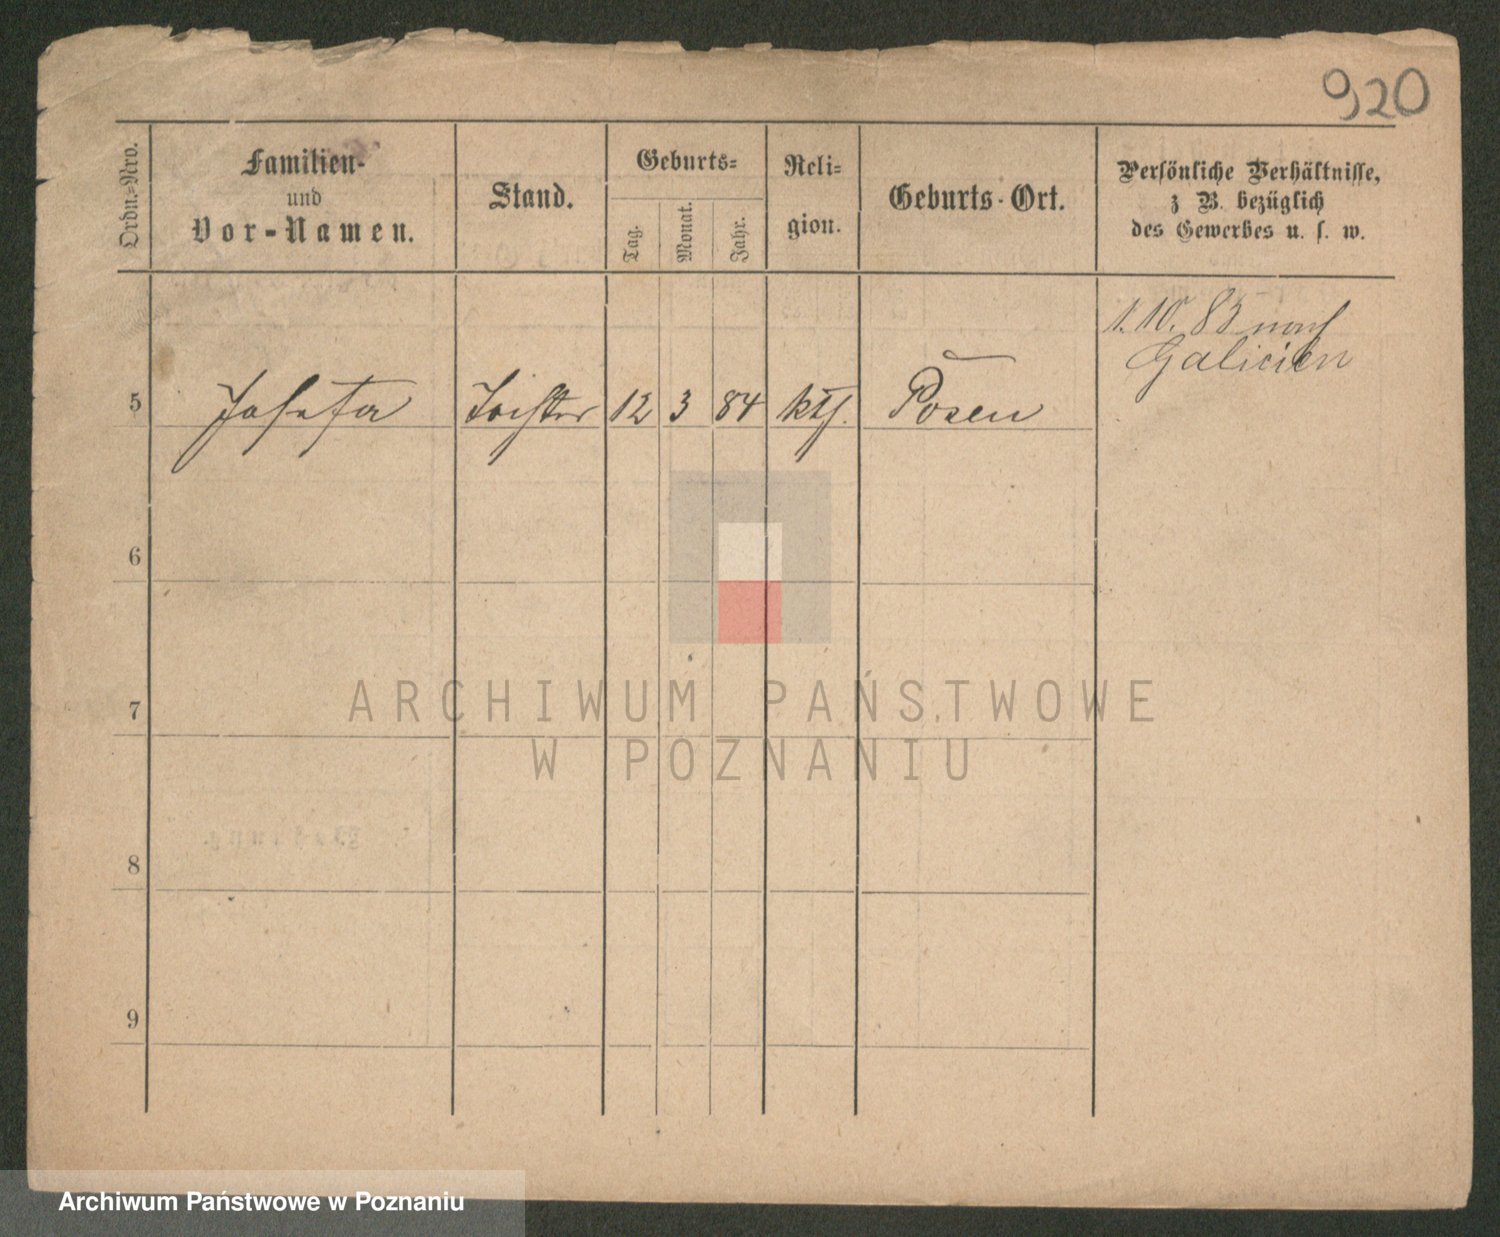 920
Ordn.-Nro.
Familien-
und
Vor-Namen.
Stand.
Geburts-
Tag.
Monat.
Jahr.
Reli-
gion.
Geburts-Ort.
Persönliche Verhältnisse,
z B. bezüglich
des Gewerbes u. s. w.
1. 10. 85 nach
Galicien
5 Josefa Tochter 12 3 84 kth. Posen
6
7
8
9
ARCHIWUM PAŃSTWOWE
W POZNANIU
Archiwum Państwowe w Poznaniu